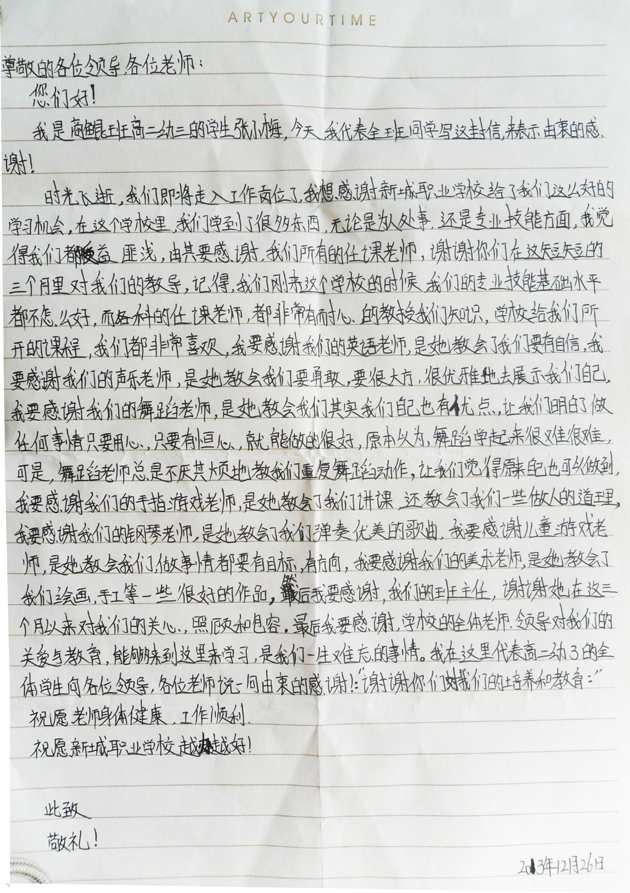 ARTYOURTIME
尊敬的各位领导,各位老师:
您们好!
我是商鲲班高二幼三的学生张小梅,今天,我代表全班同学写这封信,来表示由衷的感
谢!
时光飞逝,我们即将走入工作岗位了,我想感谢新城职业学校给了我们这么好的
学习机会,在这个学校里,我们学到了很多东西,无论是为人处事,还是专业技能方面,我觉
得我们都受益匪浅,由其要感谢,我们所有的任课老师,谢谢你们在这短短的
三个月里对我们的教导,记得,我们刚来这个学校的时候,我们的专业技能基础水平
都不怎么好,而各科的任课老师,都非常有耐心的教授我们知识,学校给我们所
开的课程,我们都非常喜欢,我要感谢我们的英语老师,是她教会了我们要有自信,我
要感谢我们的声乐老师,是她教会我们要勇敢,要很大方,很优雅地去展示我们自己,
我要感谢我们的舞蹈老师,是她教会我们其实我们自己也有优点,让我们明白了做
任何事情只要用心,只要有恒心,就能做的很好,原本以为,舞蹈学起来很难很难,
可是,舞蹈老师总是不厌其烦地教我们重复舞蹈动作,让我们觉得原来自己也可以做到,
我要感谢我们的手指游戏老师,是她教会了我们讲课,还教会了我们一些做人的道理,
我要感谢我们的钢琴老师,是她教会了我们弹奏优美的歌曲,我要感谢儿童游戏老
师,是她教会我们,做事情都要有目标,有方向,我要感谢我们的美术老师,是她教会了
我们绘画,手工等一些很好的作品,最后我要感谢,我们的班主任,谢谢她在这三
个月以来对我们的关心、照顾和包容,最后我要感谢,学校的全体老师,领导对我们的
关爱与教育,能够来到这里来学习,是我们一生难忘的事情。我在这里代表高二幼3的全
体学生向各位领导,各位老师说一句由衷的感谢!:"谢谢你们对我们的培养和教育:"
祝愿老师身体健康,工作顺利.
祝愿新城职业学校越办越好!
此致
敬礼!
2013年12月26日